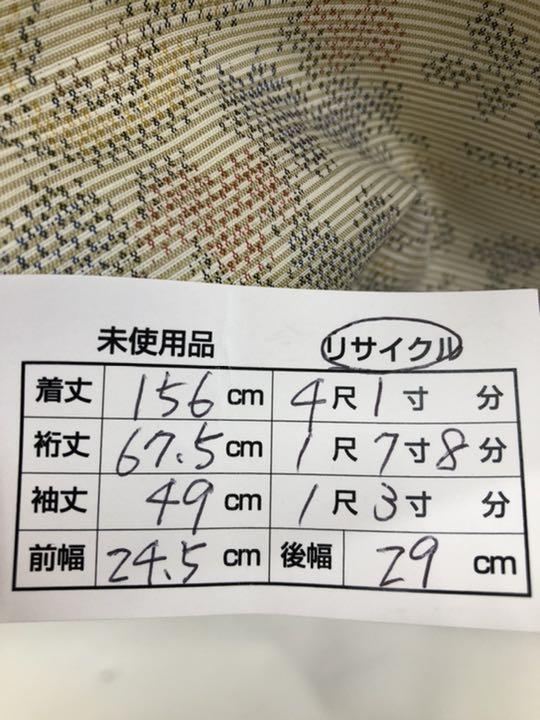 未使用品 リサイクル
着丈 156 cm 4 尺 1 寸 分
裄丈 67.5 cm 1 尺 7 寸 8 分
袖丈 49 cm 1 尺 3 寸 分
前幅 24.5 cm 後幅 29 cm